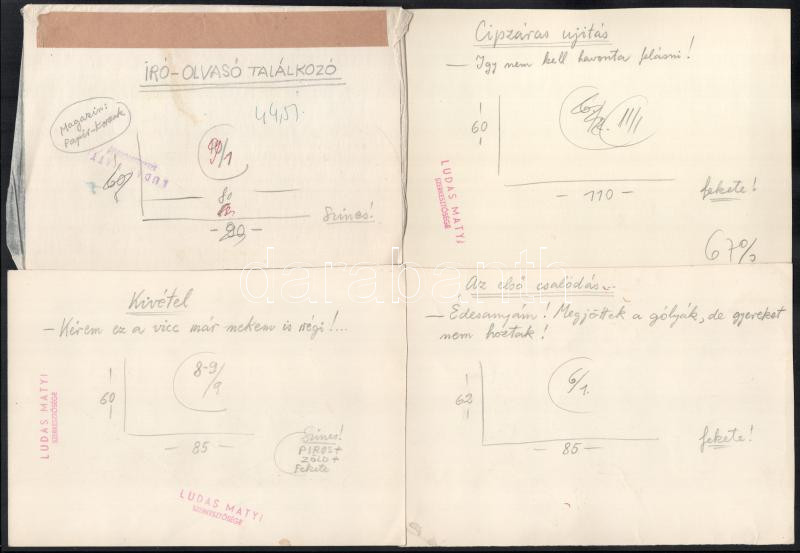 ÍRÓ-OLVASÓ TALÁLKOZÓ
Magazin:
Papír-Korunk
44,51
9/1
60
80
- 90 -
Színes!
Cipzáras ujitás
- Igy nem kell havonta felásni!
11/1
60
- 110 -
fekete!
67%
LUDAS MATYI
SZERKESZTŐSÉGE
Kivétel
- Kérem ez a vicc már nekem is régi!...
8-9/9
60
- 85 -
Színes!
PIROS+
ZÖLD+
Fekete
LUDAS MATYI
SZERKESZTŐSÉGE
LUDAS MATYI
SZERKESZTŐSÉGE
Az első csalódás...
- Édesanyám! Megjöttek a gólyák, de gyereket
nem hoztak!
6/1.
62
- 85 -
fekete!
darabanth